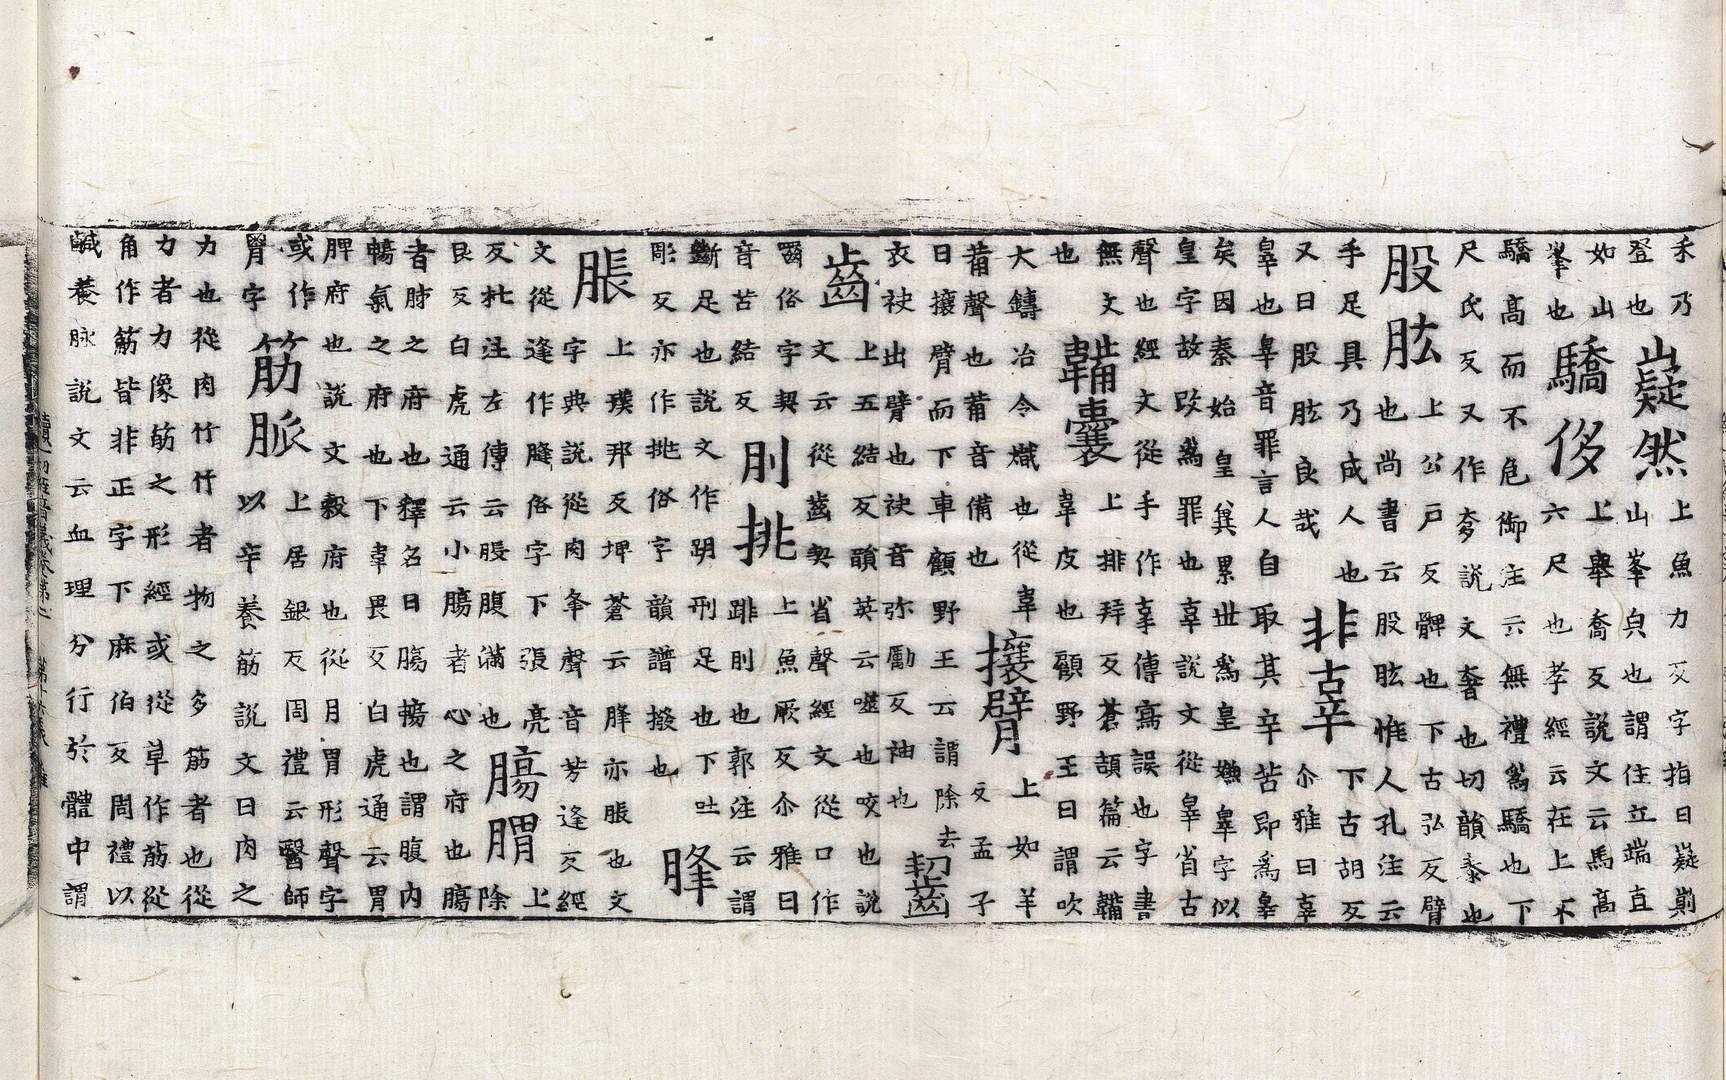 禾乃
登也
嶷然
上魚力反字指曰嶷崱
山峯皃也謂住立端直
如山
峯也
驕侈
上舉喬反說文云馬高
六尺也孝經云在上不
驕高而不危御注云無禮為驕也下
尺氏反又作奓說文奢也切韻泰也
股肱
上公戶反髀也下古弘反臂
也尚書云股肱惟人孔注云
手足具乃成人也
又曰股肱良哉
非辜
下古胡反
尒雅曰辜
辠也辠音罪言人自取其辛苦即為辠
矣因秦始皇㠱累丗為皇嫌辠字似
皇字故改為罪也辜說文從辠省古
聲也經文從手作㚔傳寫誤也字書
無文
也
韛囊
上排拜反蒼頡篇云韛
韋皮也顧野王曰謂吹
大鑄冶令熾也從韋
𤰈聲也𤰈音備也
攘臂
上如羊
反孟子
曰攘臂而下車顧野王云謂除去
衣袂出臂也袂音弥勵反袖也
齧
齒
上五結反韻英云噬也咬也說
文云從齒㓞省聲經文從口作
嚙俗字㓞
音苦結反
刖挑
上魚厥反尒雅曰
跳刖也郭注云謂
斷足也說文作跀刑足也下吐
彫反亦作挑俗字韻譜撥也
胮
脹
上璞邦反埤蒼云胮亦脹也文
字典說從肉夅聲音芳逢反經
文從逢作膖俗字下張亮
反杜注左傳云脹腹滿也
腸胃
上
除
艮反白虎通云小腸者心之府也腸
者肺之府也釋名曰腸暢也謂腹內
暢氣之府也下韋畏反白虎通云胃
脾府也說文穀府也從月胃形聲字
或作
胃字
筋脈
上居銀反周禮云醫師
以辛養筋說文曰肉之
力也從肉竹竹者物之多筋者也從
力者力像筋之形經或從草作荕從
角作䈥皆非正字下麻伯反周禮以
鹹養脉說文云血理分行於體中謂